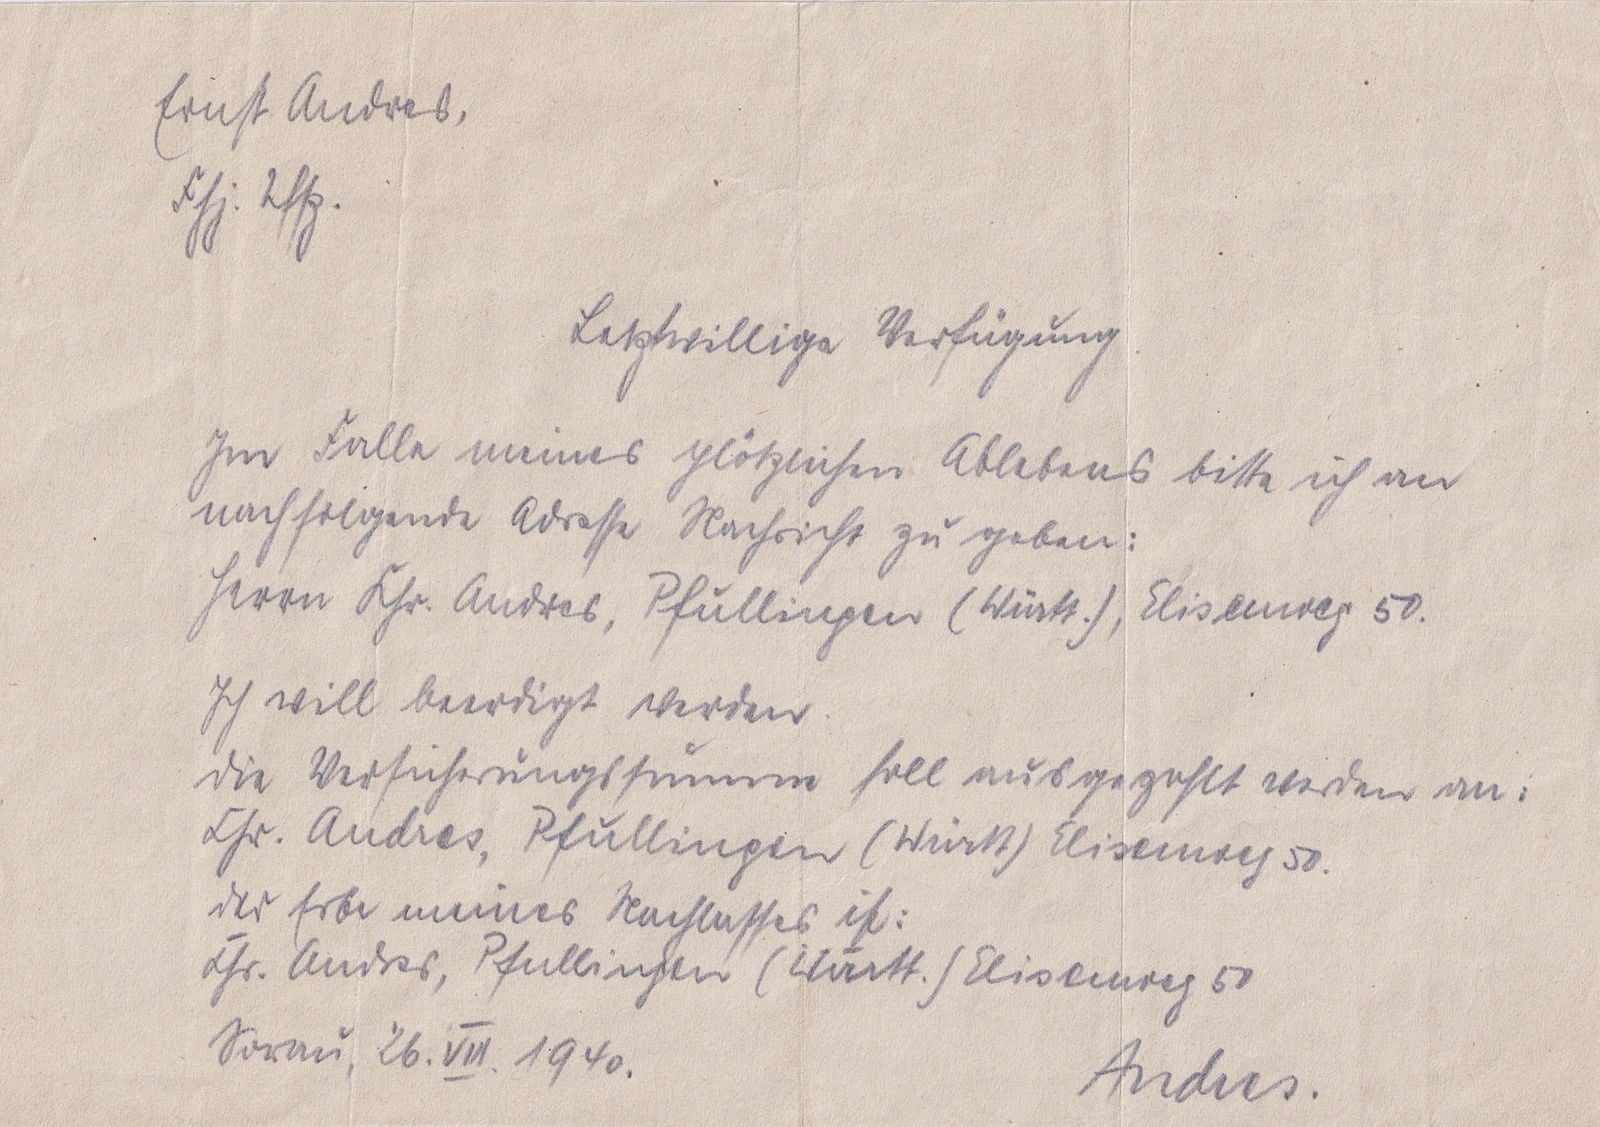 Ernst Andres,
Fhj. Uffz.
Letztwillige Verfügung
Im Falle meines plötzlichen Ablebens bitte ich an
nachfolgende Adresse Nachricht zu geben:
Herrn Chr. Andres, Pfullingen (Württ.), Elisenweg 50.
Ich will beerdigt werden.
die Versicherungssumme soll ausgezahlt werden an:
Chr. Andres, Pfullingen (Württ) Elisenweg 50.
der Erbe meines Nachlasses ist:
Chr. Andres, Pfullingen (Württ.) Elisenweg 50
Sorau, 26. VIII. 1940.
Andres.